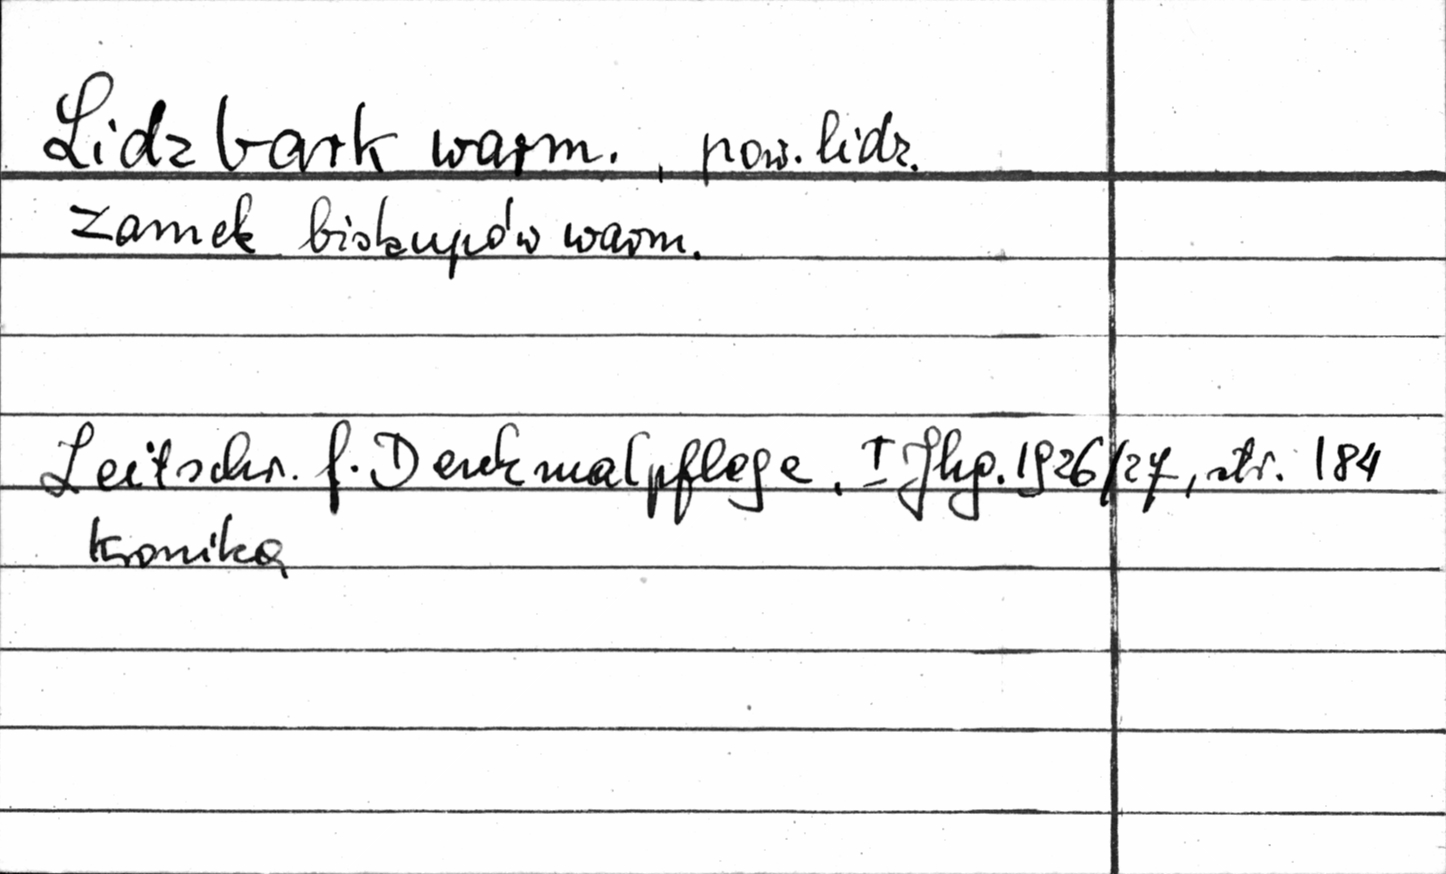 Lidzbark warm., pow. lidz.
zamek biskupów warm.
Zeitschr. f. Denkmalpflege, I Jhg. 1926/27, str. 184
kronika